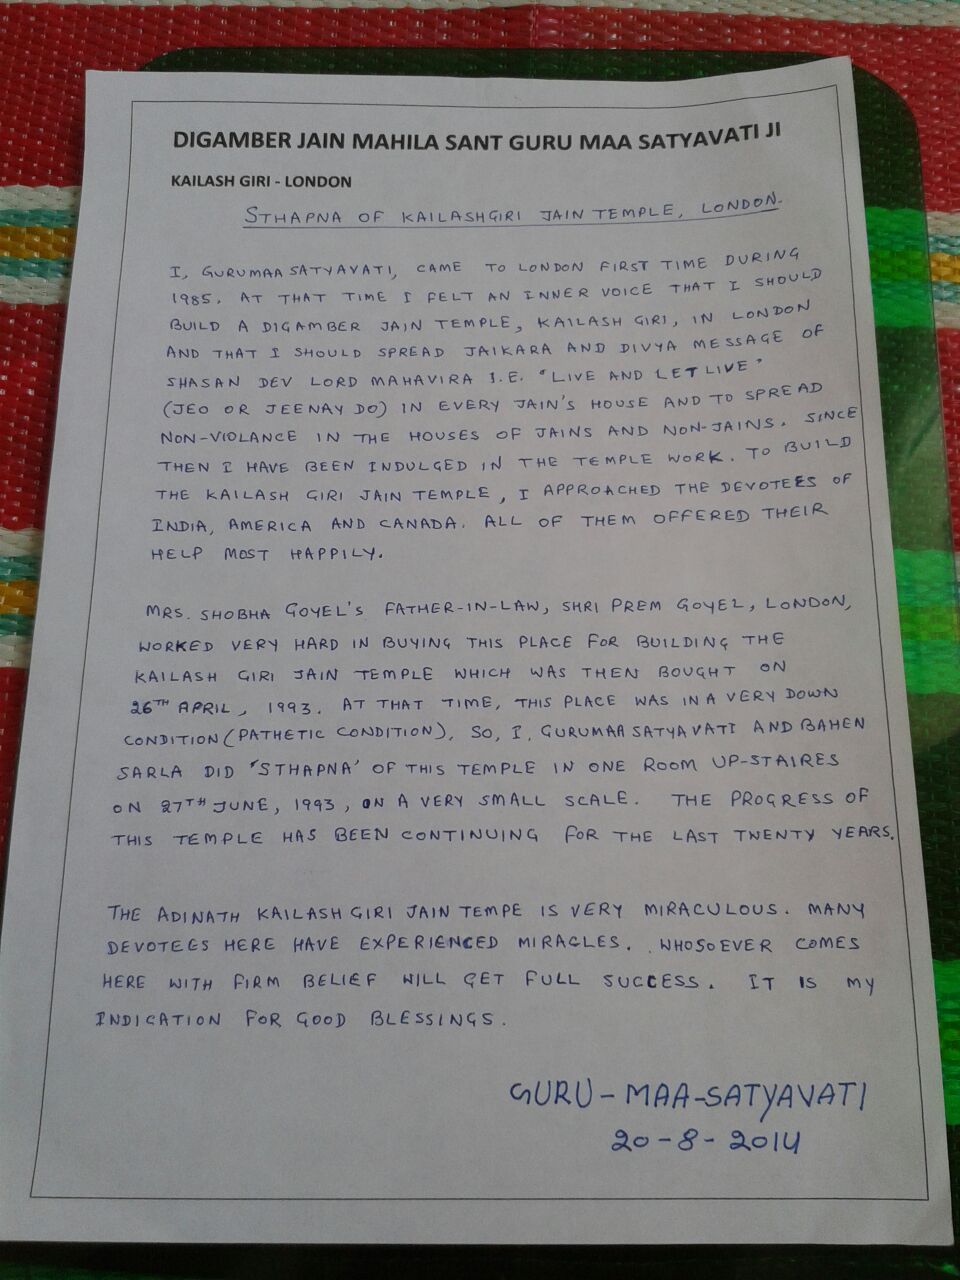 DIGAMBER JAIN MAHILA SANT GURU MAA SATYAVATI JI
KAILASH GIRI - LONDON
STHAPNA OF KAILASHGIRI JAIN TEMPLE, LONDON.
I, GURUMAA SATYAVATI, CAME TO LONDON FIRST TIME DURING
1985. AT THAT TIME I FELT AN INNER VOICE THAT I SHOULD
BUILD A DIGAMBER JAIN TEMPLE, KAILASH GIRI, IN LONDON
AND THAT I SHOULD SPREAD JAIKARA AND DIVYA MESSAGE OF
SHASAN DEV LORD MAHAVIRA I.E. "LIVE AND LET LIVE"
(JEO OR JEENAY DO) IN EVERY JAIN'S HOUSE AND TO SPREAD
NON-VIOLANCE IN THE HOUSES OF JAINS AND NON-JAINS. SINCE
THEN I HAVE BEEN INDULGED IN THE TEMPLE WORK. TO BUILD
THE KAILASH GIRI JAIN TEMPLE, I APPROACHED THE DEVOTEES OF
INDIA, AMERICA AND CANADA. ALL OF THEM OFFERED THEIR
HELP MOST HAPPILY.
MRS. SHOBHA GOYEL'S FATHER-IN-LAW, SHRI PREM GOYEL, LONDON,
WORKED VERY HARD IN BUYING THIS PLACE FOR BUILDING THE
KAILASH GIRI JAIN TEMPLE WHICH WAS THEN BOUGHT ON
26TH APRIL, 1993. AT THAT TIME, THIS PLACE WAS IN A VERY DOWN
CONDITION (PATHETIC CONDITION). SO, I, GURUMAA SATYAVATI AND BAHEN
SARLA DID 'STHAPNA' OF THIS TEMPLE IN ONE ROOM UP-STAIRES
ON 27TH JUNE, 1993, ON A VERY SMALL SCALE. THE PROGRESS OF
THIS TEMPLE HAS BEEN CONTINUING FOR THE LAST TWENTY YEARS.
THE ADINATH KAILASH GIRI JAIN TEMPE IS VERY MIRACULOUS. MANY
DEVOTEES HERE HAVE EXPERIENCED MIRACLES. WHOSOEVER COMES
HERE WITH FIRM BELIEF WILL GET FULL SUCCESS. IT IS MY
INDICATION FOR GOOD BLESSINGS.
GURU-MAA-SATYAVATI
20-8-2014